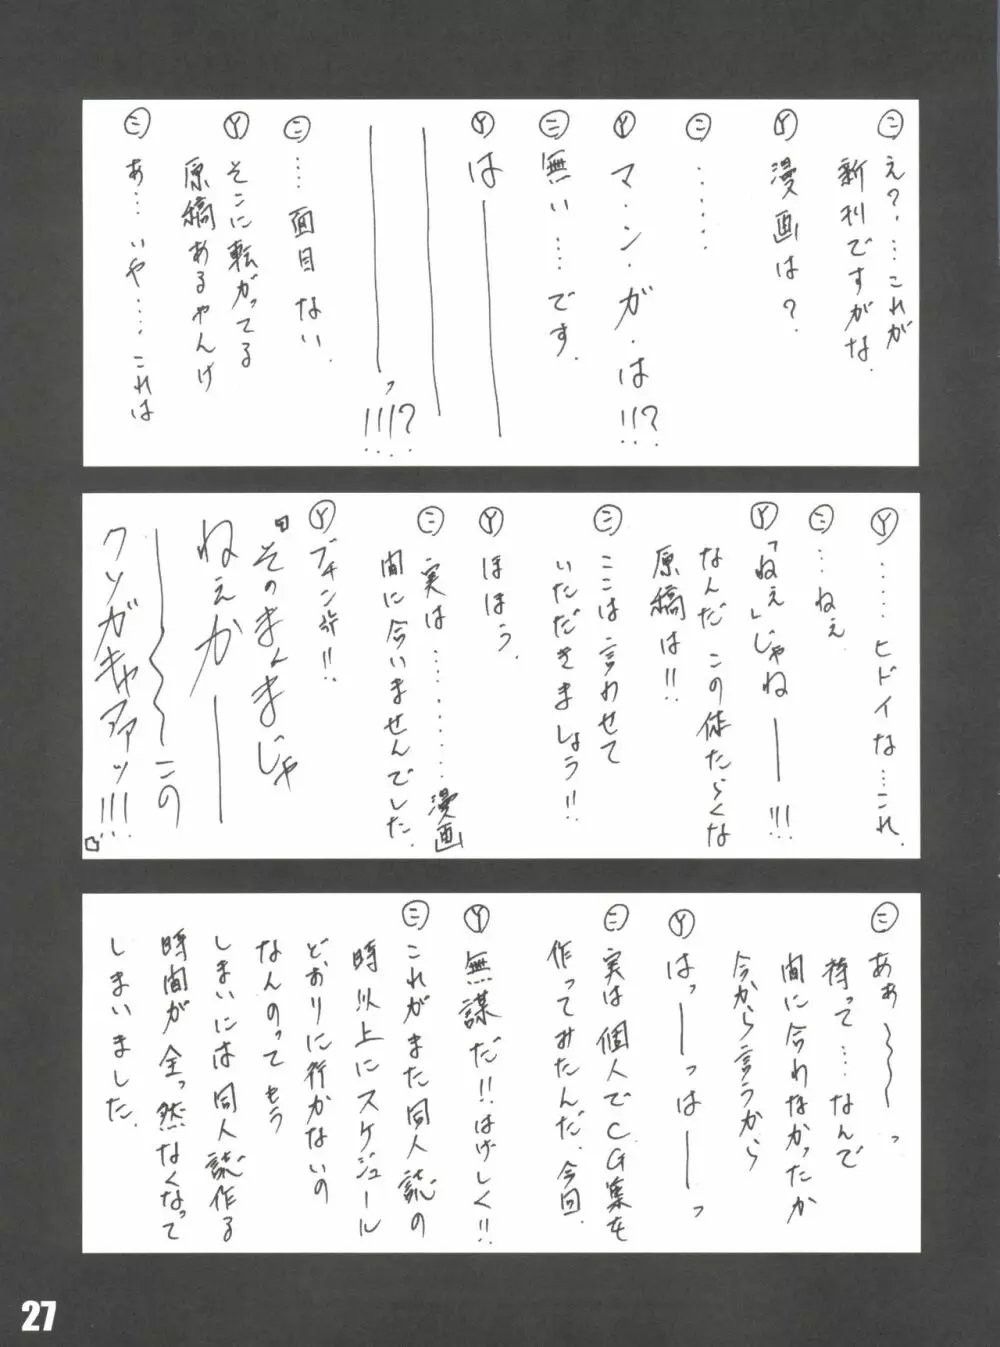 ㊁ え?‥…これが
新刊ですがな.
Ⓨ 漫画は?
㊁ ‥‥‥
Ⓨ マ・ン・ガ・は!!?
㊁ 無い…‥です.
Ⓨ は――
―――――――っ!!!?
㊁ ‥‥面目ない.
Ⓨ そこに転がってる
原稿あるやんけ
㊁ あ‥‥いや‥‥これは
Ⓨ ‥‥‥ヒドイな‥‥これ.
㊁ …ねぇ
Ⓨ 「ねぇ」じゃね――!!!
なんだ この体たらくな
原稿は!!
㊁ ここは言わせて
いただきましょう!!
Ⓨ ほほう.
㊁ 実は‥‥‥‥‥‥漫画
間に合いませんでした.
Ⓨ ブチン
『そのまんまじゃ
ねぇか――
――〜〜〜このクソガキャアァッ!!!』
㊁ あぁ〜〜〜っ
待って‥‥なんで
間に合わなかったか
今から言うから
Ⓨ はっ――っは――っ
㊁ 実は個人でCG集を
作ってみたんだ.今回.
Ⓨ 無謀だ!!はげしく!!
㊁ これがまた同人誌の
時以上にスケジュール
どおりに行かないの
なんのって もう
しまいには同人誌作る
時間が全っ然なくなって
しまいました.
27